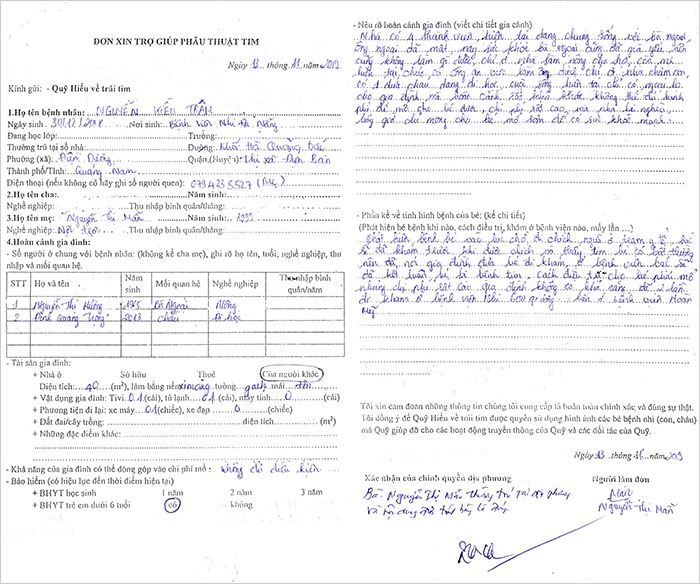 ĐƠN XIN TRỢ GIÚP PHẪU THUẬT TIM
Ngày 13 .tháng .11. .năm 2019
Kính gửi: - Quỹ Hiểu về trái tim
1.Họ tên bệnh nhân: NGUYỄN KIỀU TRÂM
Ngày sinh 30/12/2018 Nơi sinh: Bệnh viện Nhi Đà Nẵng
Đang học lớp: Trường:
Thường trú tại số nhà: Đường: Khối
Phường (xã): Điện Quận (Huyện): Thị xã Điện Bàn
Thành phố/Tỉnh: Quảng Nam
Điện thoại (nếu không có hãy ghi số người quen): 0794235527 (Mẹ)
2.Họ tên cha: Năm sinh:
Nghề nghiệp Thu nhập bình quân/tháng:
3.Họ tên mẹ: Nguyễn Thị Mãn Năm sinh: 1999
Nghề nghiệp: Nội trợ Thu nhập bình quân/tháng:
4.Hoàn cảnh gia đình:
- Số người ở chung với bệnh nhân: (không kể cha mẹ), ghi rõ họ tên, tuổi, nghề nghiệp, thu
nhập và mối quan hệ.
STT Họ và tên Năm sinh Mối quan hệ Nghề nghiệp Thu nhập bình quân/năm
1 Nguyễn Thị Hường 1965 Bà Ngoại Nông
2 Đinh Quang Trọng 2013 cháu Đi học
- Tài sản gia đình:
+ Nhà ở Sở hữu Thuê Của người khác
Diện tích: 40 (m²), làm bằng nền xi măng tường gạch mái tôn
+ Vật dụng gia đình: Tivi 01 (cái), tủ lạnh 01 (cái), máy tính 0 (cái)
+ Phương tiện đi lại: xe máy 01 (chiếc), xe đạp 0 (chiếc)
+ Đất đai/cây trồng: diện tích (m²)
+ Những đặc điểm khác:
- Khả năng của gia đình có thể đóng góp vào chi phí mổ: không đủ điều kiện
- Bảo hiểm (có hiệu lực đến thời điểm hiện tại)
+ BHYT học sinh 1 năm 2 năm 3 năm
+ BHYT trẻ em dưới 6 tuổi có không
- Nêu rõ hoàn cảnh gia đình (viết chi tiết gia cảnh)
Nhà có 4 thành viên, hiện tại đang chung sống với bà ngoại,
ông ngoại đã mất, nay sức khỏe bà ngoại cũng đã già yếu nên
cũng không làm gì được chỉ ở nhà
có 1 đứa cháu đang đi học, cuộc sống hiện tại chỉ có ngoại lo
cho gia đình mà hoàn cảnh rất khó khăn không thể đủ kinh
phí để mổ cho bé được chi phí rất cao, mà nhà lại nghèo
bây giờ chỉ mong cho bé mổ sớm để có sức khỏe mạnh.
- Phần kể về tình hình bệnh của bé: (kể chi tiết)
(Phát hiện bé bệnh khi nào, cách điều trị, khám ở bệnh viện nào, mấy lần ...)
Phát hiện bệnh bé vào lúc chở đi chích ngừa ở trạm y tế, bác
sĩ đã khám trước khi được chích có thấy tim bé có bất thường
nên đã nói gia đình đưa bé đi khám, ở bệnh viện bác sĩ
đã kết luận bé bị bệnh tim. Cách điều trị cho bé phải mổ
nhưng chi phí rất cao gia đình không có khả năng, đã 2 lần
khám ở bệnh viện Nhi 1 lần ở bệnh viện Hoàn
Mỹ
Tôi xin cam đoan những thông tin chúng tôi cung cấp là hoàn toàn chính xác và đúng sự thật.
Tôi đồng ý để Quỹ Hiểu về trái tim được quyền sử dụng hình ảnh các bé bệnh nhi (con, cháu)
mà Quỹ giúp đỡ cho các hoạt động truyền thông của Quỹ và các đối tác của Quỹ.
Ngày 13 tháng 11 năm 2019
Xác nhận của chính quyền địa phương Người làm đơn
Bà Nguyễn Thị Mãn thường trú tại địa phương Mãn
và nội dung Nguyễn Thị Mãn